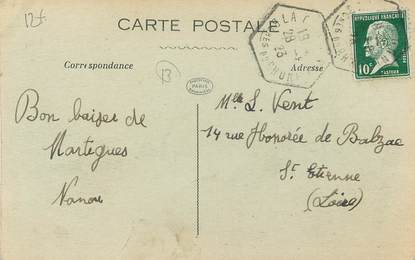 12f
CARTE POSTALE
Correspondance
Adresse
13
PARIS
RÉPUBLIQUE FRANÇAISE
10c
PASTEUR
Bon baiser de
Martigues
Nanou
Mlle L. Vent
14 rue Honorée de Balzac
St Etienne
(Loire)